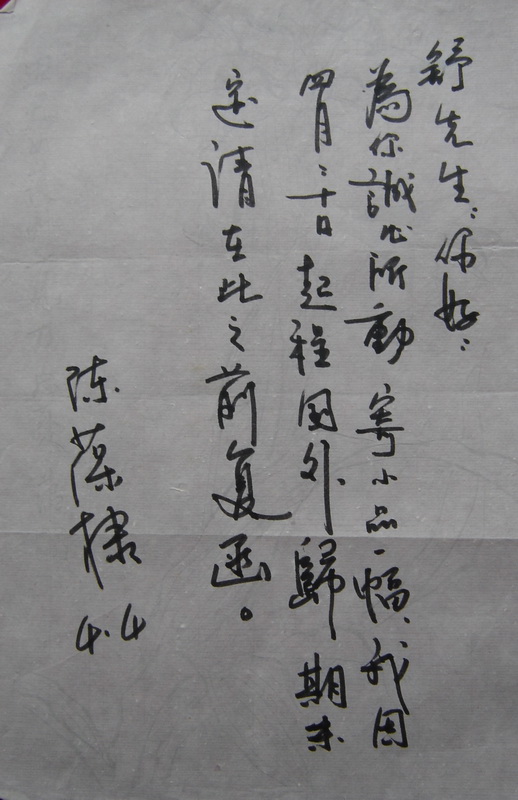 舒先生：你好：
為你誠心所動 寄小品一幅、我因
四月二十日起程国外歸期未
定请在此之前复函。
陈葆棣
4.4